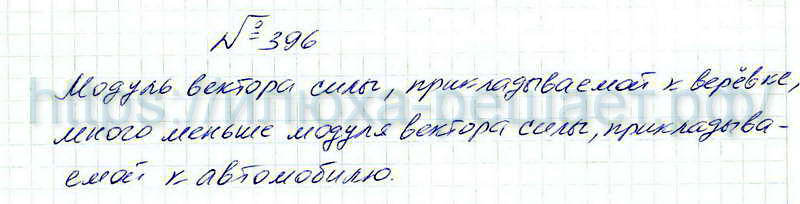 № 396
Модуль вектора силы, прикладываемой к верёвке,
много меньше модуля вектора силы, прикладыва-
емой к автомобилю.